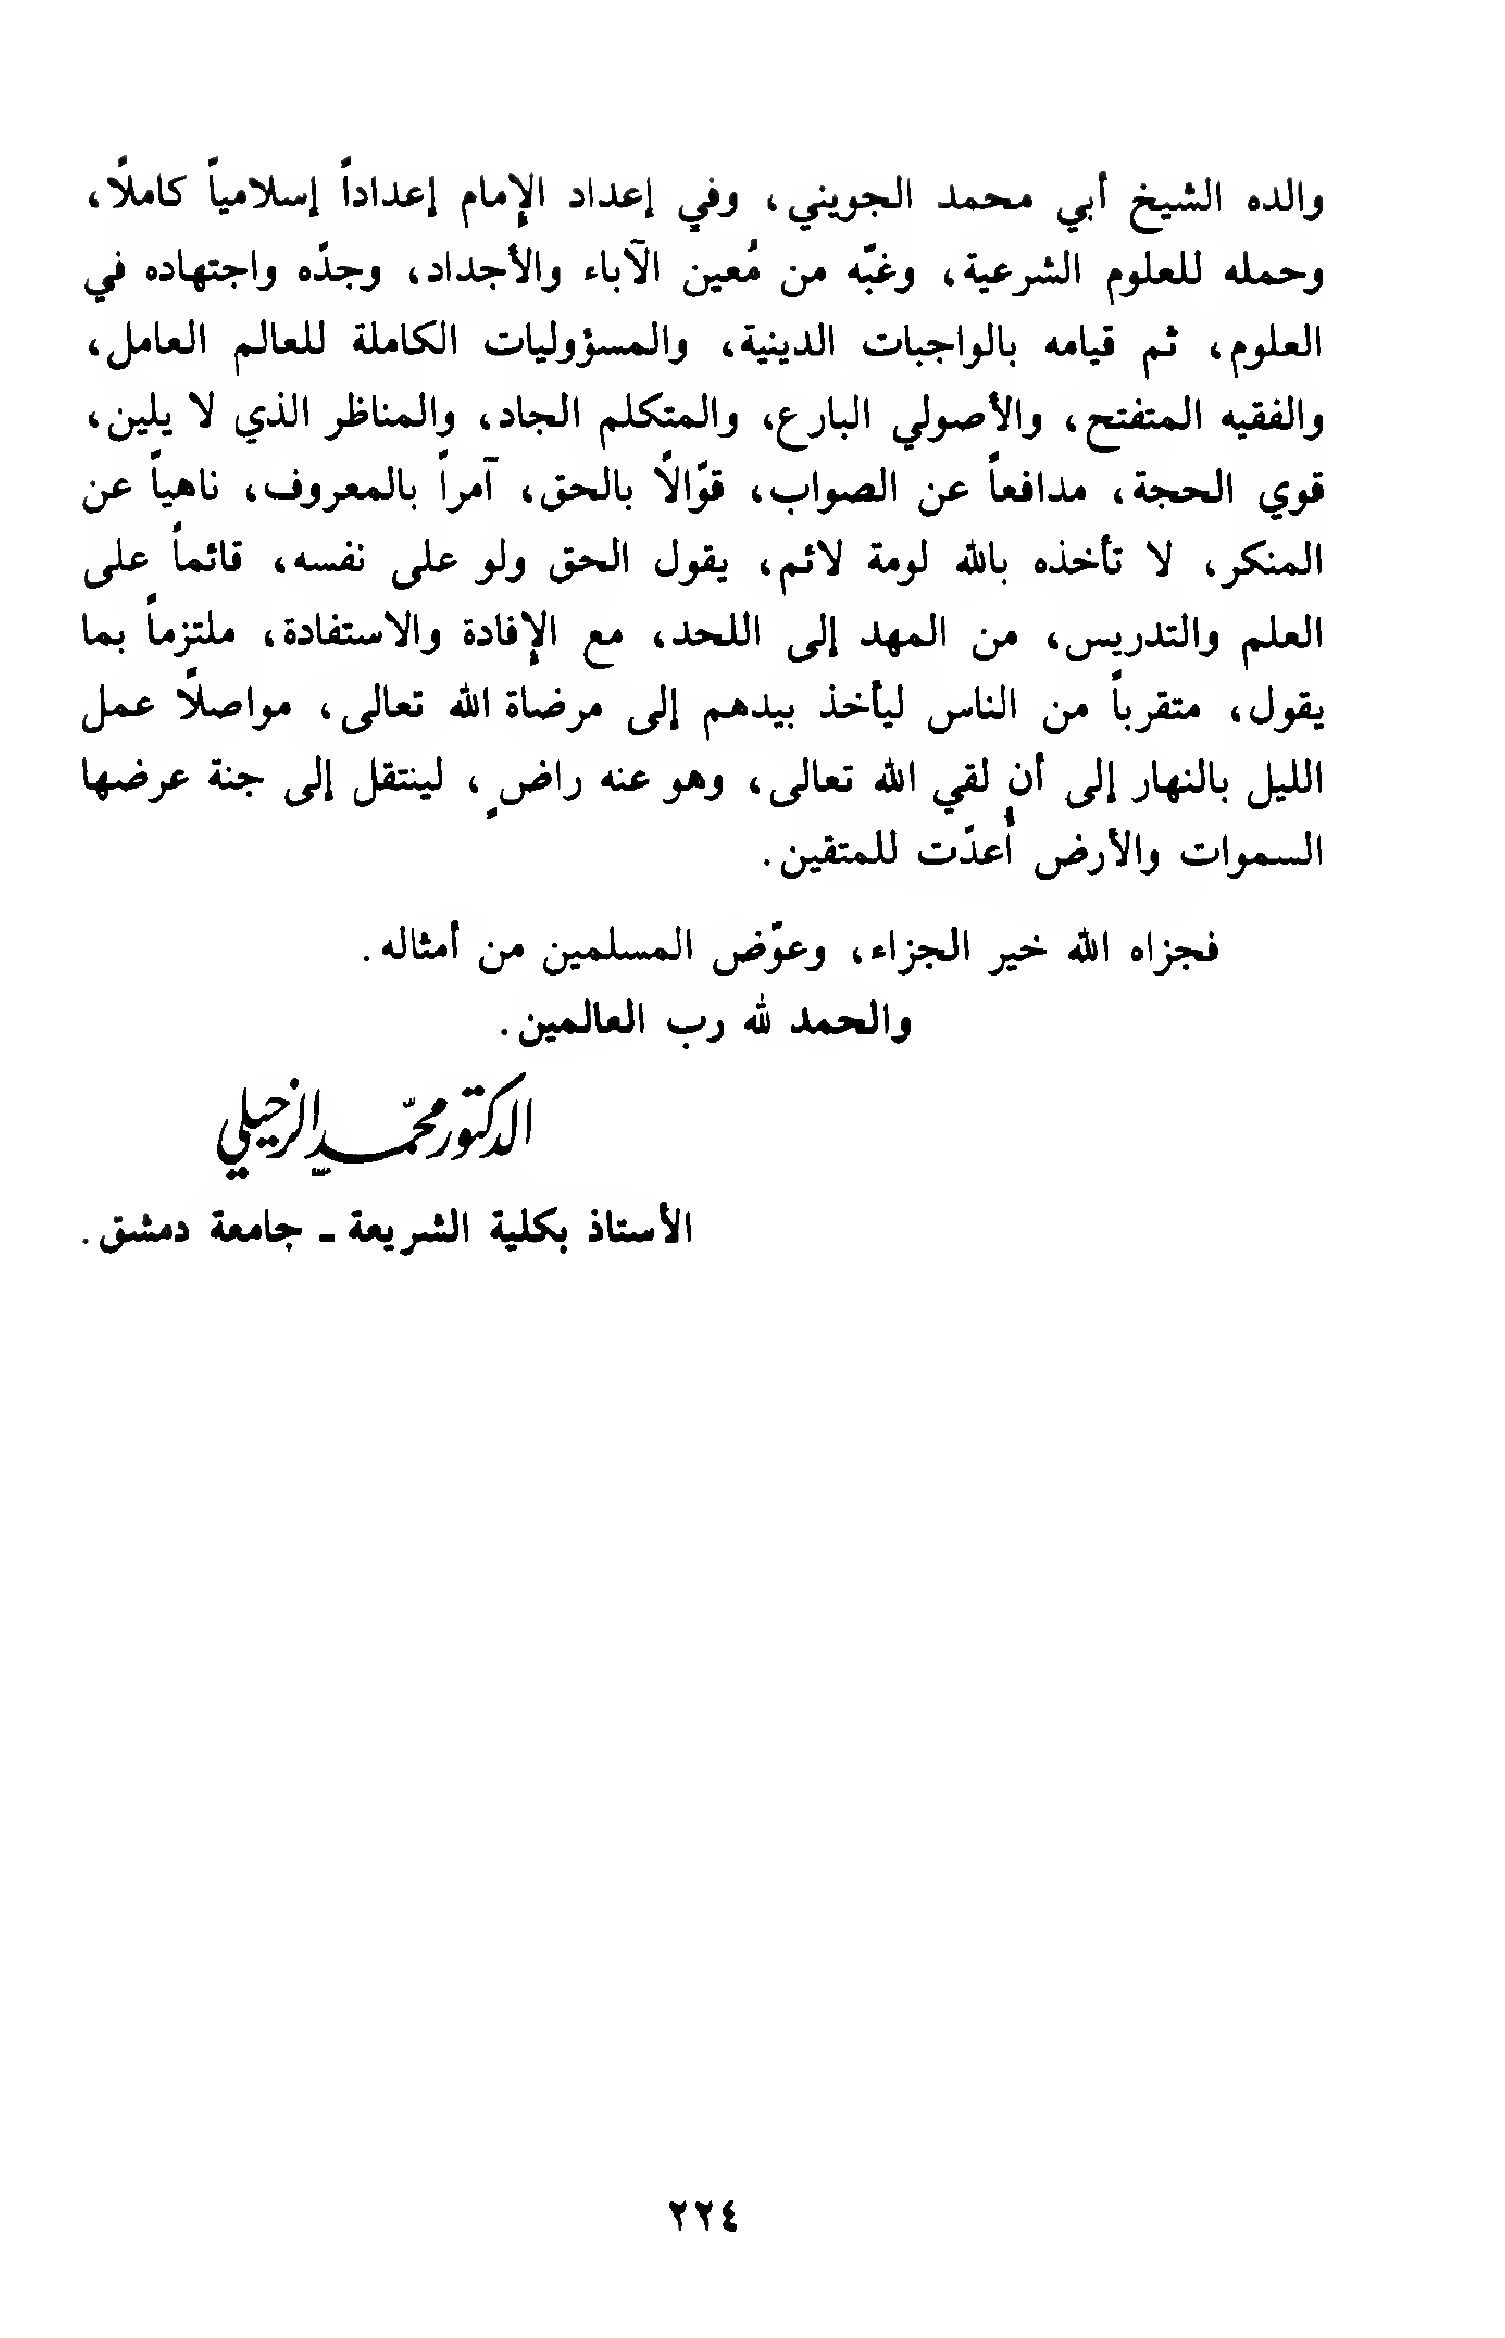 والده الشيخ أبي محمد الجويني، وفي إعداد الإمام إعداداً إسلامياً كاملاً،
وحمله للعلوم الشرعية، وغبّه من مُعين الآباء والأجداد، وجدّه واجتهاده في
العلوم، ثم قيامه بالواجبات الدينية، والمسؤوليات الكاملة للعالم العامل،
والفقيه المتفتح، والأصولي البارع، والمتكلم الجاد، والمناظر الذي لا يلين،
قوي الحجة، مدافعاً عن الصواب، قوّالاً بالحق، آمراً بالمعروف، ناهياً عن
المنكر، لا تأخذه بالله لومة لائم، يقول الحق ولو على نفسه، قائماً على
العلم والتدريس، من المهد إلى اللحد، مع الإفادة والاستفادة، ملتزماً بما
يقول، متقرباً من الناس ليأخذ بيدهم إلى مرضاة الله تعالى، مواصلاً عمل
الليل بالنهار إلى أن لقي الله تعالى، وهو عنه راضٍ، لينتقل إلى جنة عرضها
السموات والأرض أُعدّت للمتقين.
فجزاه الله خير الجزاء، وعوّض المسلمين من أمثاله.
والحمد لله رب العالمين.
الدكتور محمّد الزحيلي
الأستاذ بكلية الشريعة - جامعة دمشق.
٢٢٤